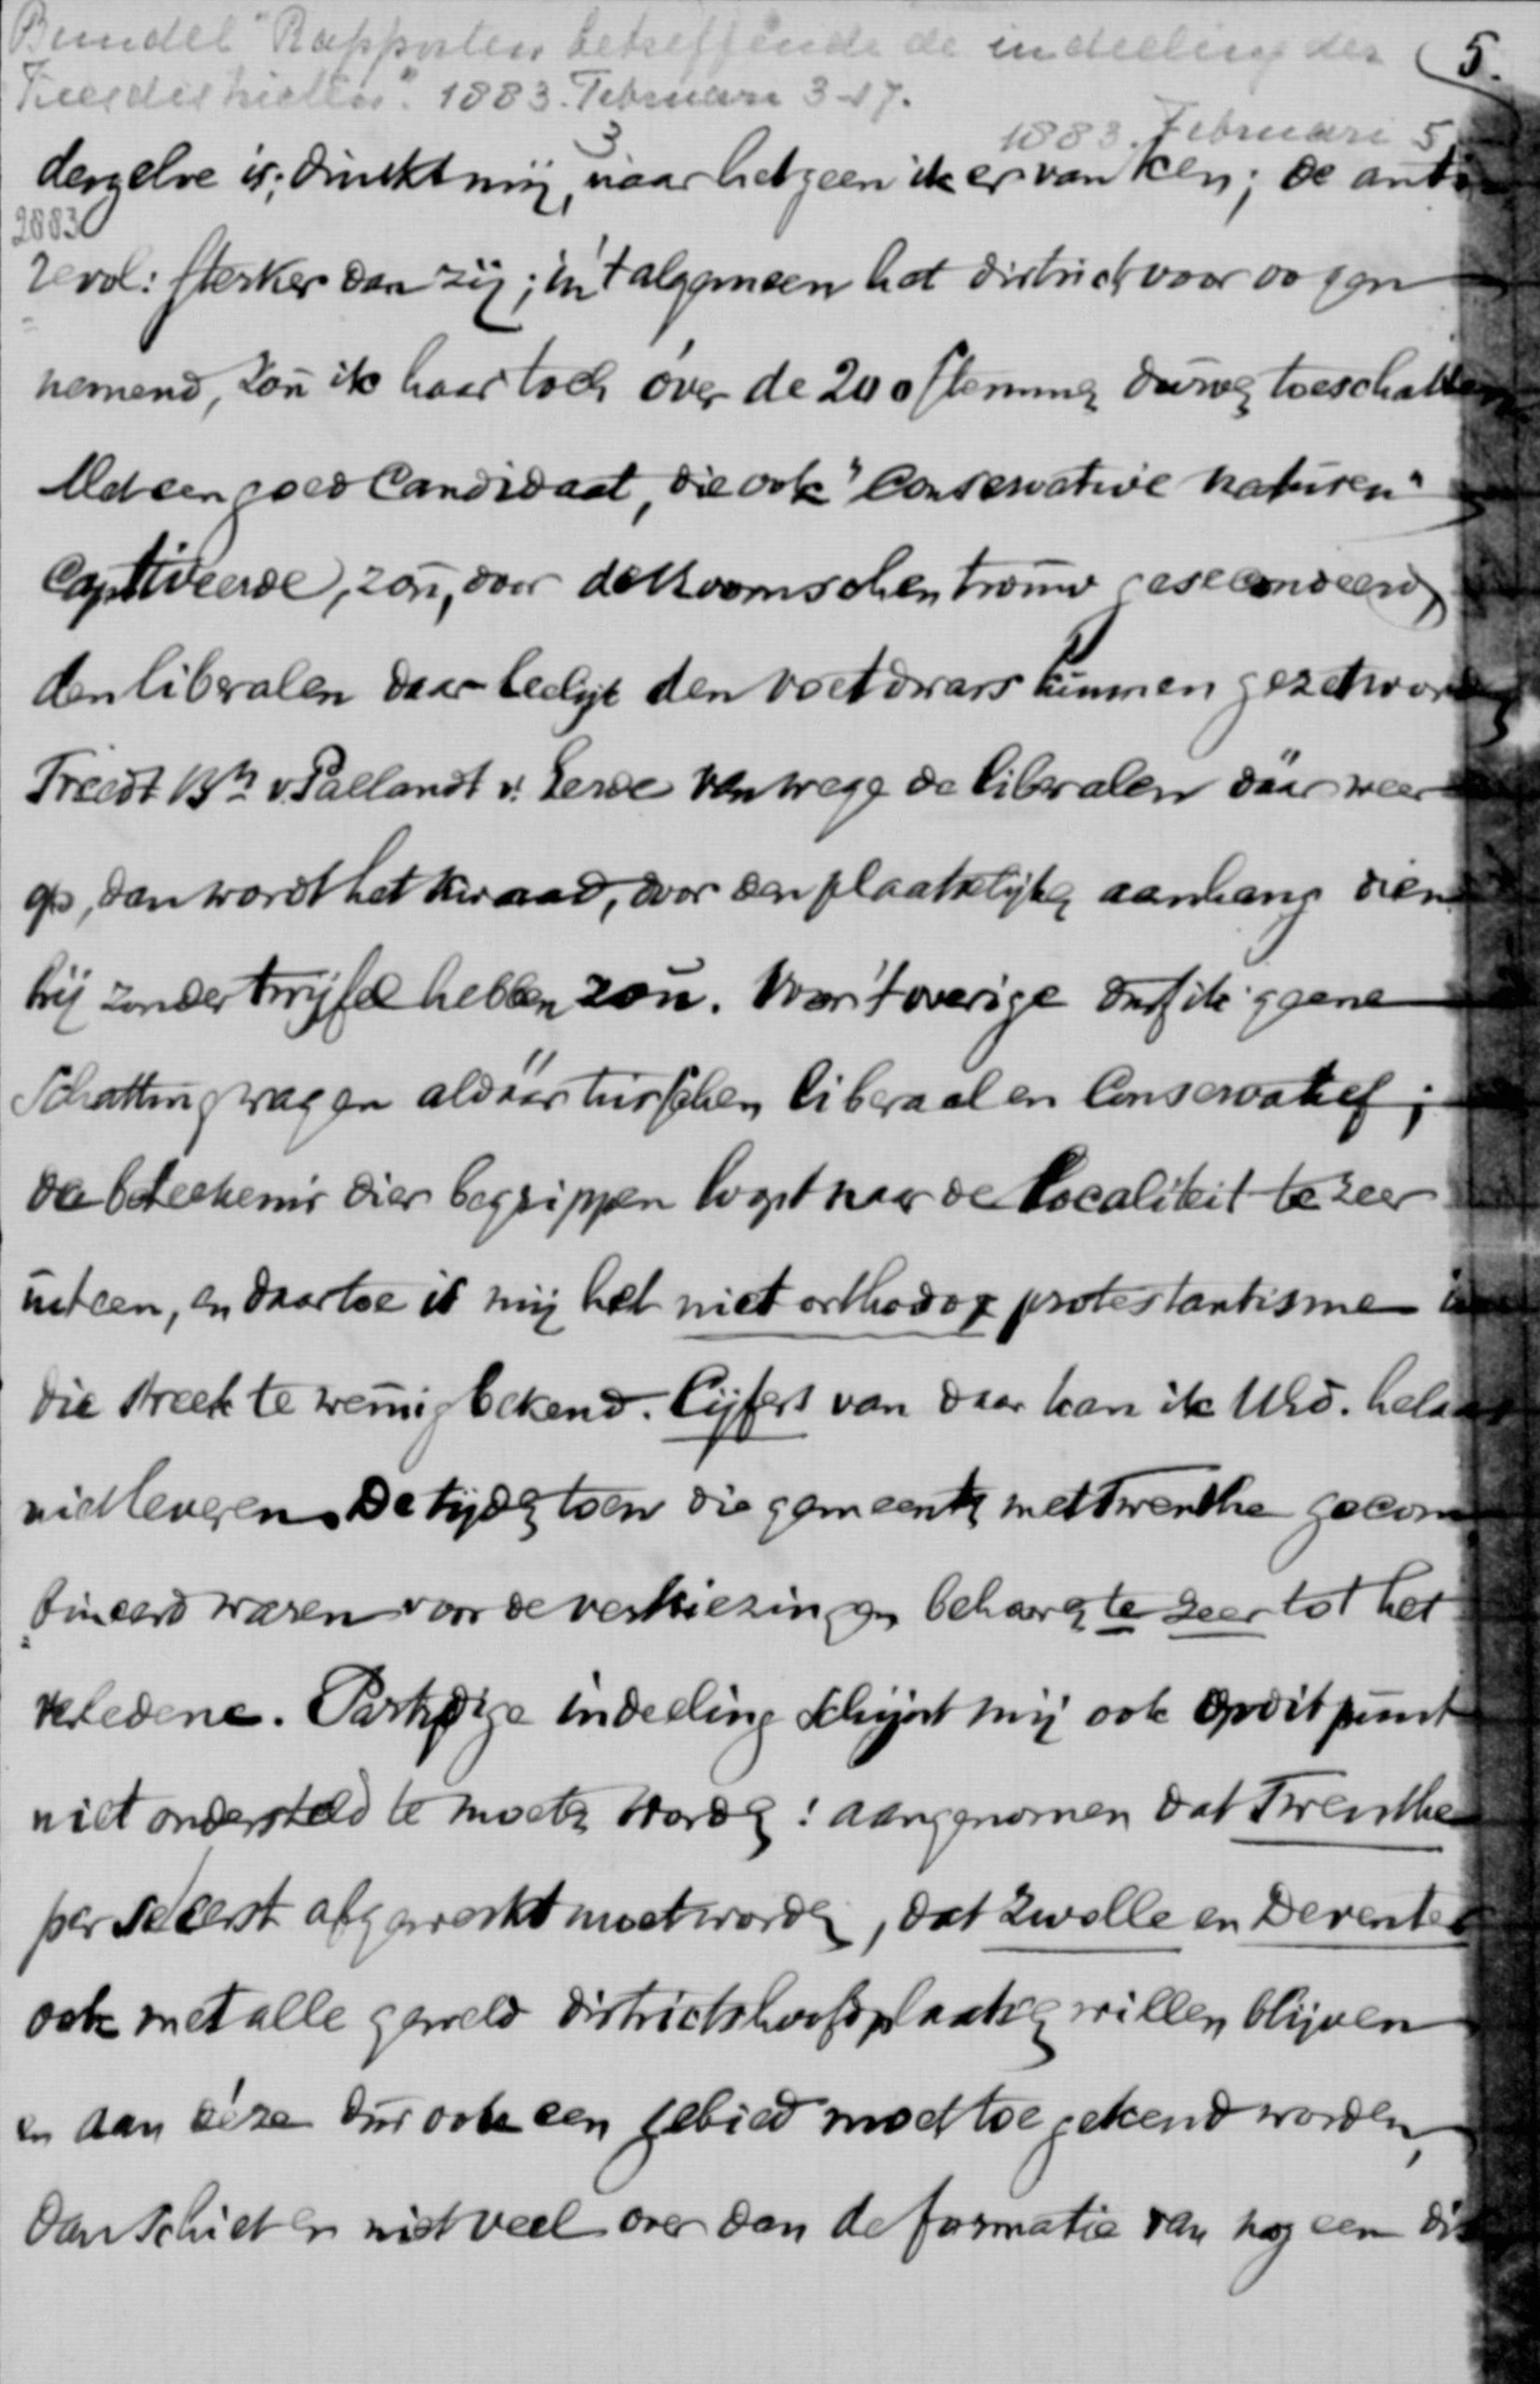 Bundel "Rapporten betreffende de indeeling der
Kiesdistricten". 1883. Februari 3-17.
5.
1883. Februari 5
3
dergelve is; dunkt mij, naar hetgeen ik er van ken; de anti
2883
revol: sterker dan zij; in 't algemeen het district voor oogen
nemend, zou ik haar toch over de 200 stemmen durven toeschatten
Met een goed Candidaat, die ook "Conservative naturen"
Captiveerde, zou, door de Roomschen trouw gesecondeerd
den liberalen daar leelijk den voet dwars kunnen gezet worden
Treedt Bn v. Pallandt v. Eerde vanwege de liberalen däär weer
op, dan wordt het kwaad, door den plaatselijken aanhang dien
hij zonder twijfel hebben zou. Voor 't overige durf ik geene
Schatting wagen aldäär tusschen liberaal en Conservatief;
de beteekenis dier begrippen loopt naar de localiteit te zeer
uiteen, en daartoe is mij het niet orthodox protestantisme in
die streek te weinig bekend. Cijfers van daar kan ik UEd. helaas
niet leveren. De tijden toen die gemeenten met Twenthe gecom
bineerd waren voor de verkiezingen behooren te zeer tot het
verledene. Partijdige indeeling schijnt mij ook op dit punt
niet ondersteld te moeten worden: aangenomen dat Twenthe
per se eerst afgewerkt moet worden, dat Zwolle en Deventer
ook met alle geweld districtshoofdplaatsen willen blijven
en aan deze dus ook een gebied moet toegekend worden,
dan schiet er niet veel over dan de formatie van nog een dis